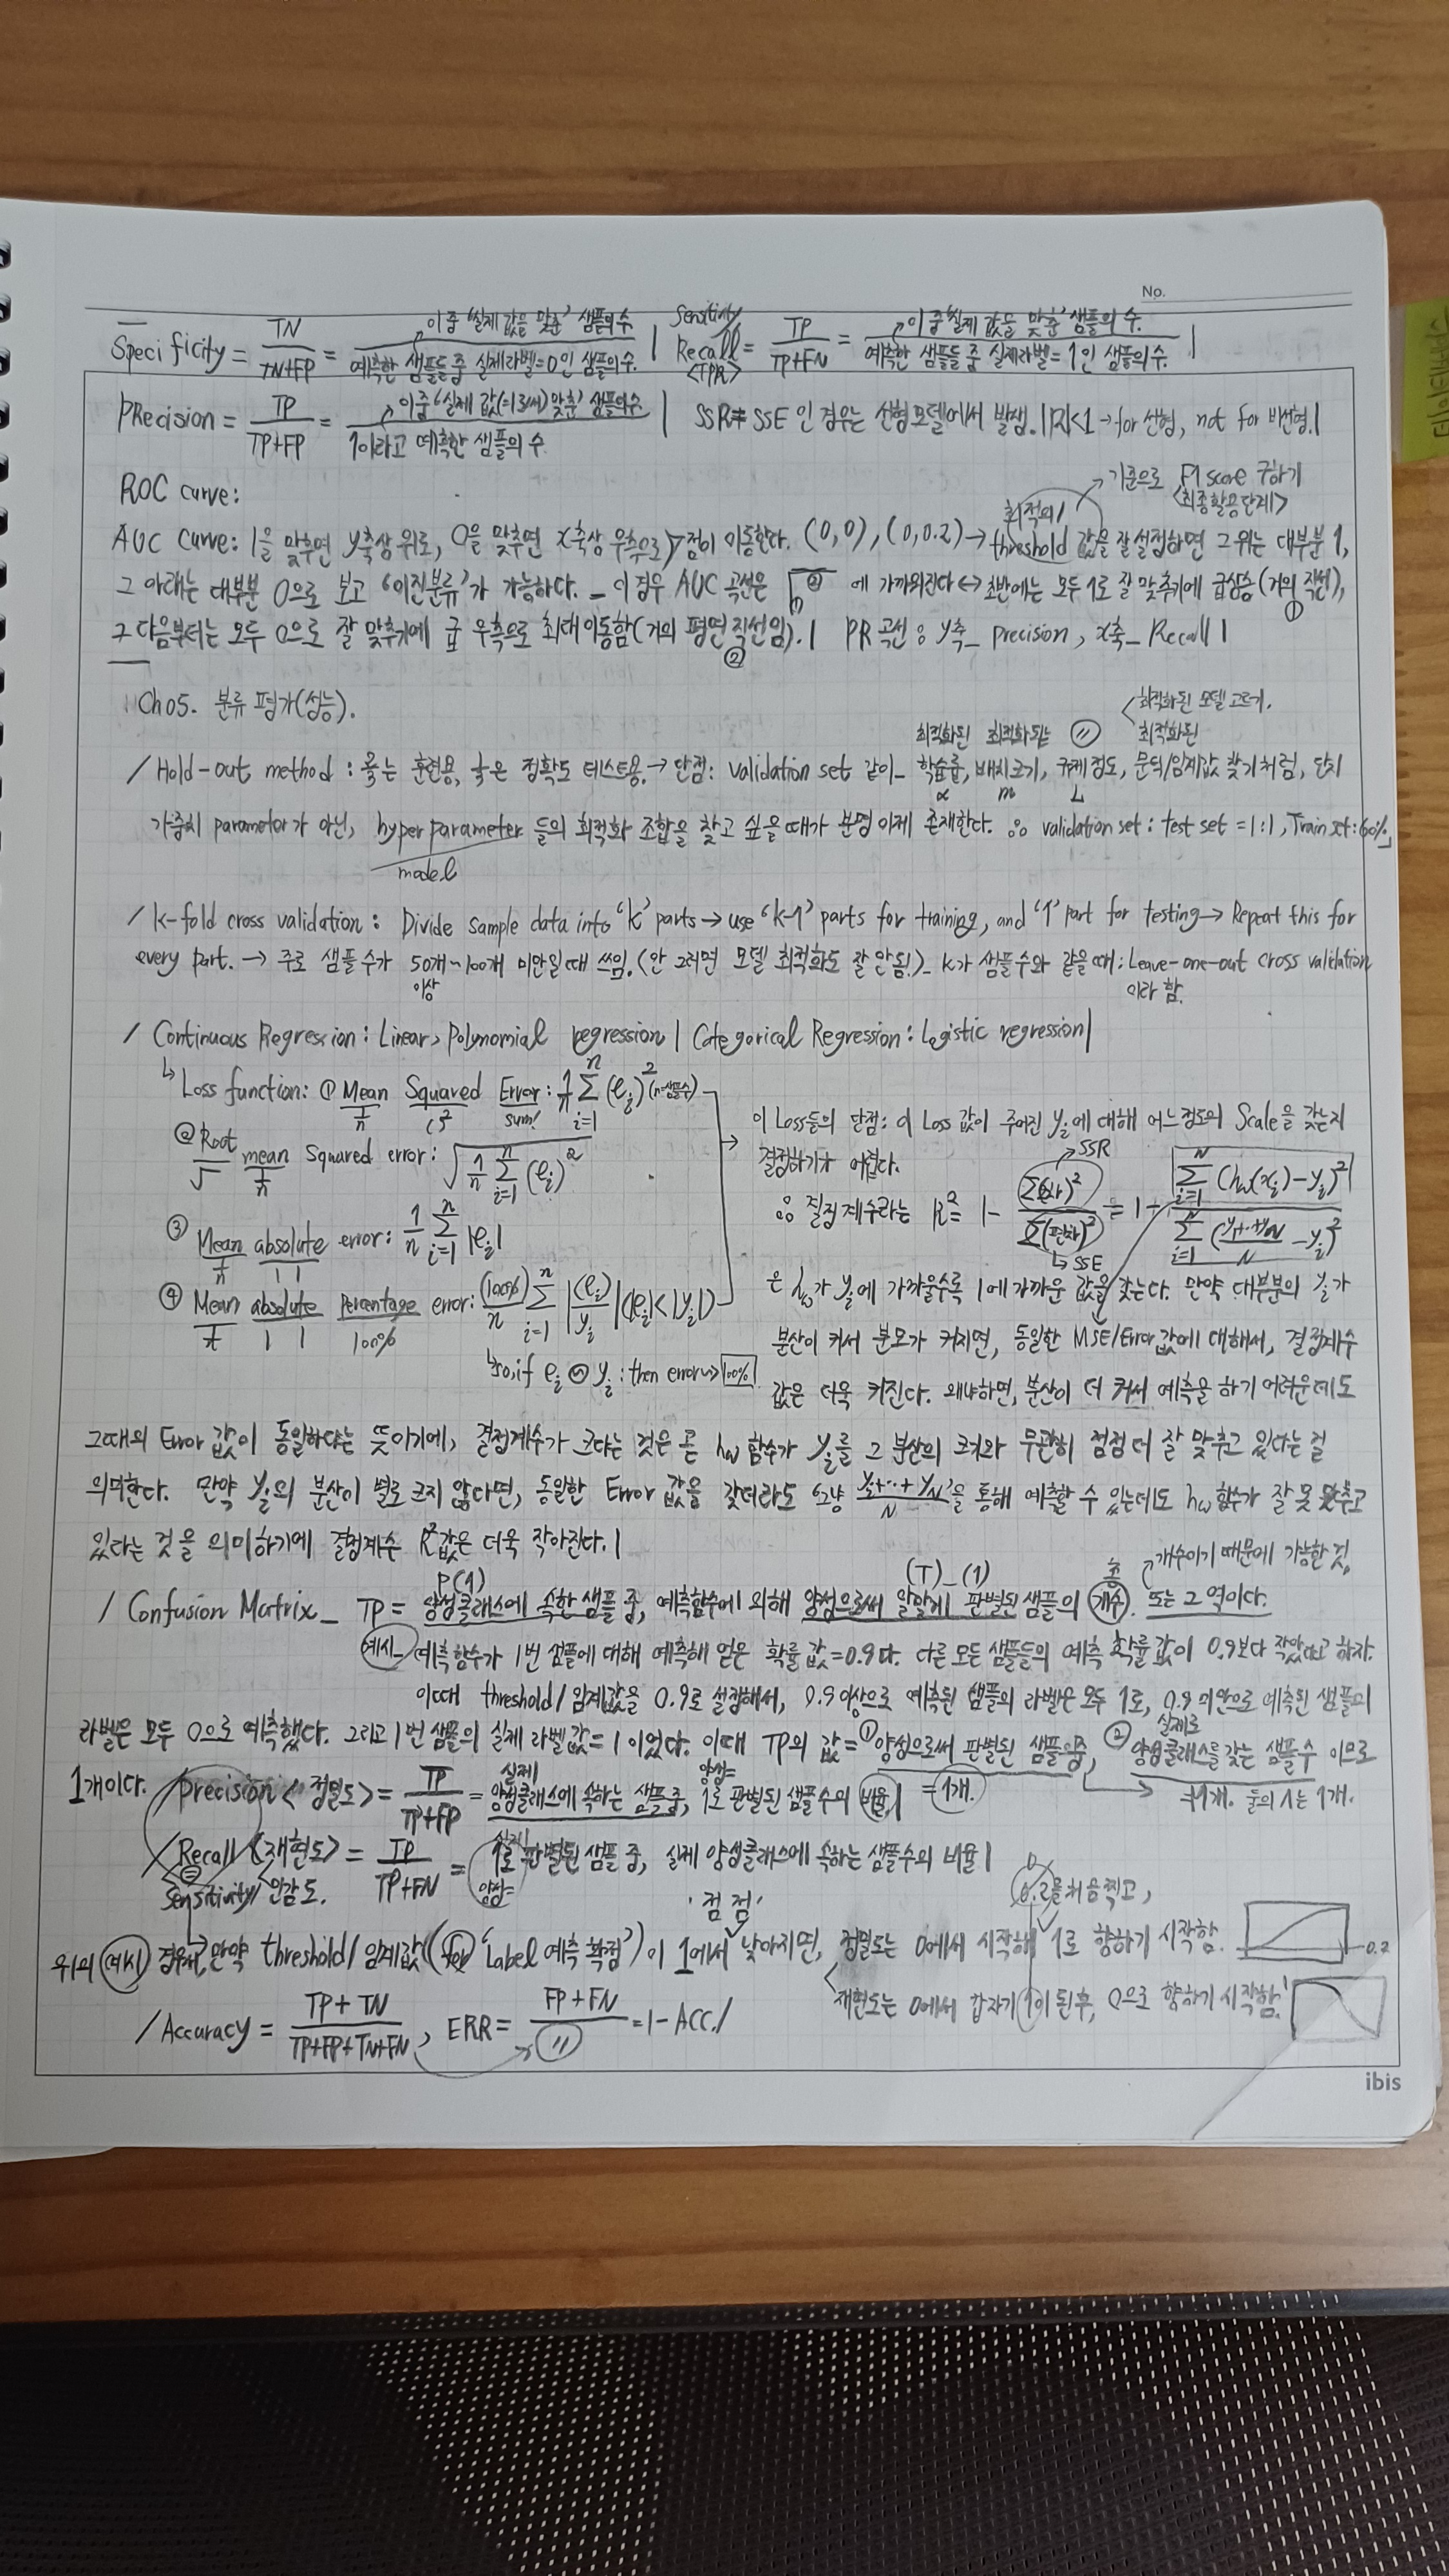 No.
Specificity = TN / TN+FP = 이중 '실제 값을 맞춘' 샘플의 수. / 예측한 샘플들 중 실제라벨=0인 샘플의 수. | Sensitivity Recall <TPR> = TP / TP+FN = 이중 '실제 값을 맞춘' 샘플의 수. / 예측한 샘플들 중 실제라벨=1인 샘플의 수. |
PRecision = TP / TP+FP = 이중 '실제 값(=1로써) 맞춘' 샘플의 수 / 1이라고 예측한 샘플의 수. | SSR≠SSE 인 경우는 선형모델에서 발생. <1 → for 선형, not for 비선형.|
ROC curve:
최적의/ 기준으로 F1 score 구하기 <최종활용단계>
AUC curve: 1을 맞추면 y축상 위로, 0을 맞추면 x축상 우측으로 점이 이동한다. (0,0), (0,0.2) → threshold 값을 잘 설정하면 그 위는 대부분 1,
그 아래는 대부분 0으로 보고 '이진분류'가 가능하다. _ 이 경우 AUC 곡선은 ① ② 에 가까워진다 ↔ 초반에는 모두 1로 잘 맞추기에 급상승(거의 직선),
①
그 다음부터는 모두 0으로 잘 맞추기에 급 우측으로 최대이동함(거의 평면 직선임). | PR 곡선 : y축_ precision, x축_ Recall |
②
Ch05. 분류 평가(성능).
<최적화된 모델 고르기.
최적화된 최적화되는 〃 최적화된
/ Hold-out method : 훈련용, 정확도 테스트용. → 단점: validation set 같이_ 학습률, 배치크기, 규제 정도, 문턱/임계값 찾기처럼, 단지
α m
가중치 parametor가 아닌, hyper parameter 들의 최적화 조합을 찾고 싶을 때가 분명 이제 존재한다. ∴ validation set : test set = 1:1, Train set: 60%
model
/ k-fold cross validation : Divide sample data into 'k' parts → use 'k-1' parts for training, and '1' part for testing → Repeat this for
every part. → 주로 샘플 수가 50개~100개 미만일 때 쓰임. (안 그러면 모델 최적화도 잘 안됨!)_ k가 샘플 수와 같을 때 : Leave-one-out cross validation
이상 이라 함.
/ Continuous Regression : Linear, Polynomial regression | Categorical Regression : Logistic regression |
↳ Loss function: ① Mean Squared Error : 1/n Σ i=1 n (e_i)² (n=샘플수)
sum!
② Root mean Squared error : √(1/n Σ i=1 n (e_i)²)
③ Mean absolute error : 1/n Σ i=1 n |e_i|
④ Mean absolute percentage error : (100%)/n Σ i=1 n |(e_i)/y_i| (|e_i|<|y_i|)
100%
↳ so, if e_i ∽ y_i : then error → 100%
이 Loss들의 단점: 이 Loss 값이 주어진 y_i에 대해 어느정도의 Scale을 갖는지
결정하기가 어렵다.
∴ 결정계수라는 R² = 1 - Σ(오차)² / Σ(편차)² = 1 - Σ i=1 N (h_w(x_i) - y_i)² / Σ i=1 N (y_1+…+y_N / N - y_i)²
SSR
SSE
은 h_w가 y_i에 가까울수록 1에 가까운 값을 갖는다. 만약 대부분의 y_i가
분산이 커서 분모가 커지면, 동일한 MSE/Error값에 대해서, 결정계수
값은 더욱 커진다. 왜냐하면, 분산이 더 커서 예측을 하기 어려운데도
그때의 Error 값이 동일하다는 뜻이기에, 결정계수가 크다는 것은 곧 h_w 함수가 y_i를 그 분산의 크기와 무관히 점점 더 잘 맞추고 있다는 걸
의미한다. 만약 y_i의 분산이 별로 크지 않다면, 동일한 Error 값을 갖더라도 '그냥 y_1+…+y_N / N'을 통해 예측할 수 있는데도 h_w 함수가 잘 못 맞추고
있다는 것을 의미하기에 결정계수 R²값은 더욱 작아진다. |
P(1) (T)_(1) 개수이기 때문에 가능한 것.
/ Confusion Matrix_ TP = 양성클래스에 속한 샘플 중, 예측함수에 의해 양성으로써 알맞게 판별된 샘플의 총 개수. 또는 그 역이다.
예시_ 예측 함수가 1번 샘플에 대해 예측해 얻은 확률 값=0.9다. 다른 모든 샘플들의 예측 확률값이 0.9보다 작았다고 하자.
이때 threshold/임계값을 0.9로 설정해서, 0.9 이상으로 예측된 샘플의 라벨은 모두 1로, 0.9 미만으로 예측된 샘플의
라벨은 모두 0으로 예측했다. 그리고 1번 샘플의 실제 라벨값=1이었다. 이때 TP의 값= ① 양성으로써 판별된 샘플중, ② 실제로 양성클래스를 갖는 샘플 수 이므로
1개이다. / precision <정밀도> = TP / TP+FP = 실제 양성클래스에 속하는 샘플 중, 양성= 1로 판별된 샘플수의 비율 | =1개. =1개. 둘의 ∧는 1개.
/ Recall <재현도> = TP / TP+FN = 1로 판별된 샘플 중, 실제 양성클래스에 속하는 샘플수의 비율 |
양성=
Sensitivity/민감도.
'점점' 0.2를 처음 찍고,
위의 예시 경우, 만약 threshold/임계값(for 'Label 예측 확정')이 1에서 낮아지면, 정밀도는 0에서 시작해 1로 향하기 시작함.
0.2
재현도는 0에서 갑자기 1이 된 후, 0으로 향하기 시작함.
/ Accuracy = TP+TN / TP+FP+TN+FN, ERR = FP+FN / 〃 = 1-ACC. /
ibis